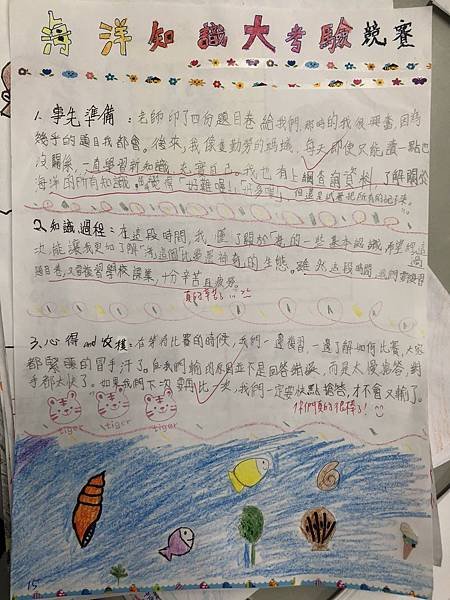 海洋知識大考驗競賽
1.事先準備：老師印了四份題目卷給我們，那時的我很興奮，因為
幾乎的題目我都會。後來，我像隻勤勞的螞蟻，每天即使只能讀一點也
沒關係，一直學習新知識，充實自己。我也有上網查詢資料，了解關於
海洋的所有知識。「好難喔！」「好多喔！」但還是試著把所有的記下來。
2.知識過程：在這段時間，我，懂了關於「海」的一些基本認識，希望經過這
次，能讓我更加了解「海」這個比較是神奇的生態。雖然這段時間，我們需複習
題目卷，又要複習學校課業，十分辛苦且疲勞。
真的辛苦了
3.心得and收穫：在等待比賽的時候，我們一邊複習，一邊了解如何比賽，大家
都緊張的冒手汗了。但我們輸的原因並不是回答錯誤，而是太慢搶答，對
手都太快了。如果我們下次要再比一次，我們一定要快點搶答，才不會又輸了。
你們真的很棒了！
tiger tiger tiger
15